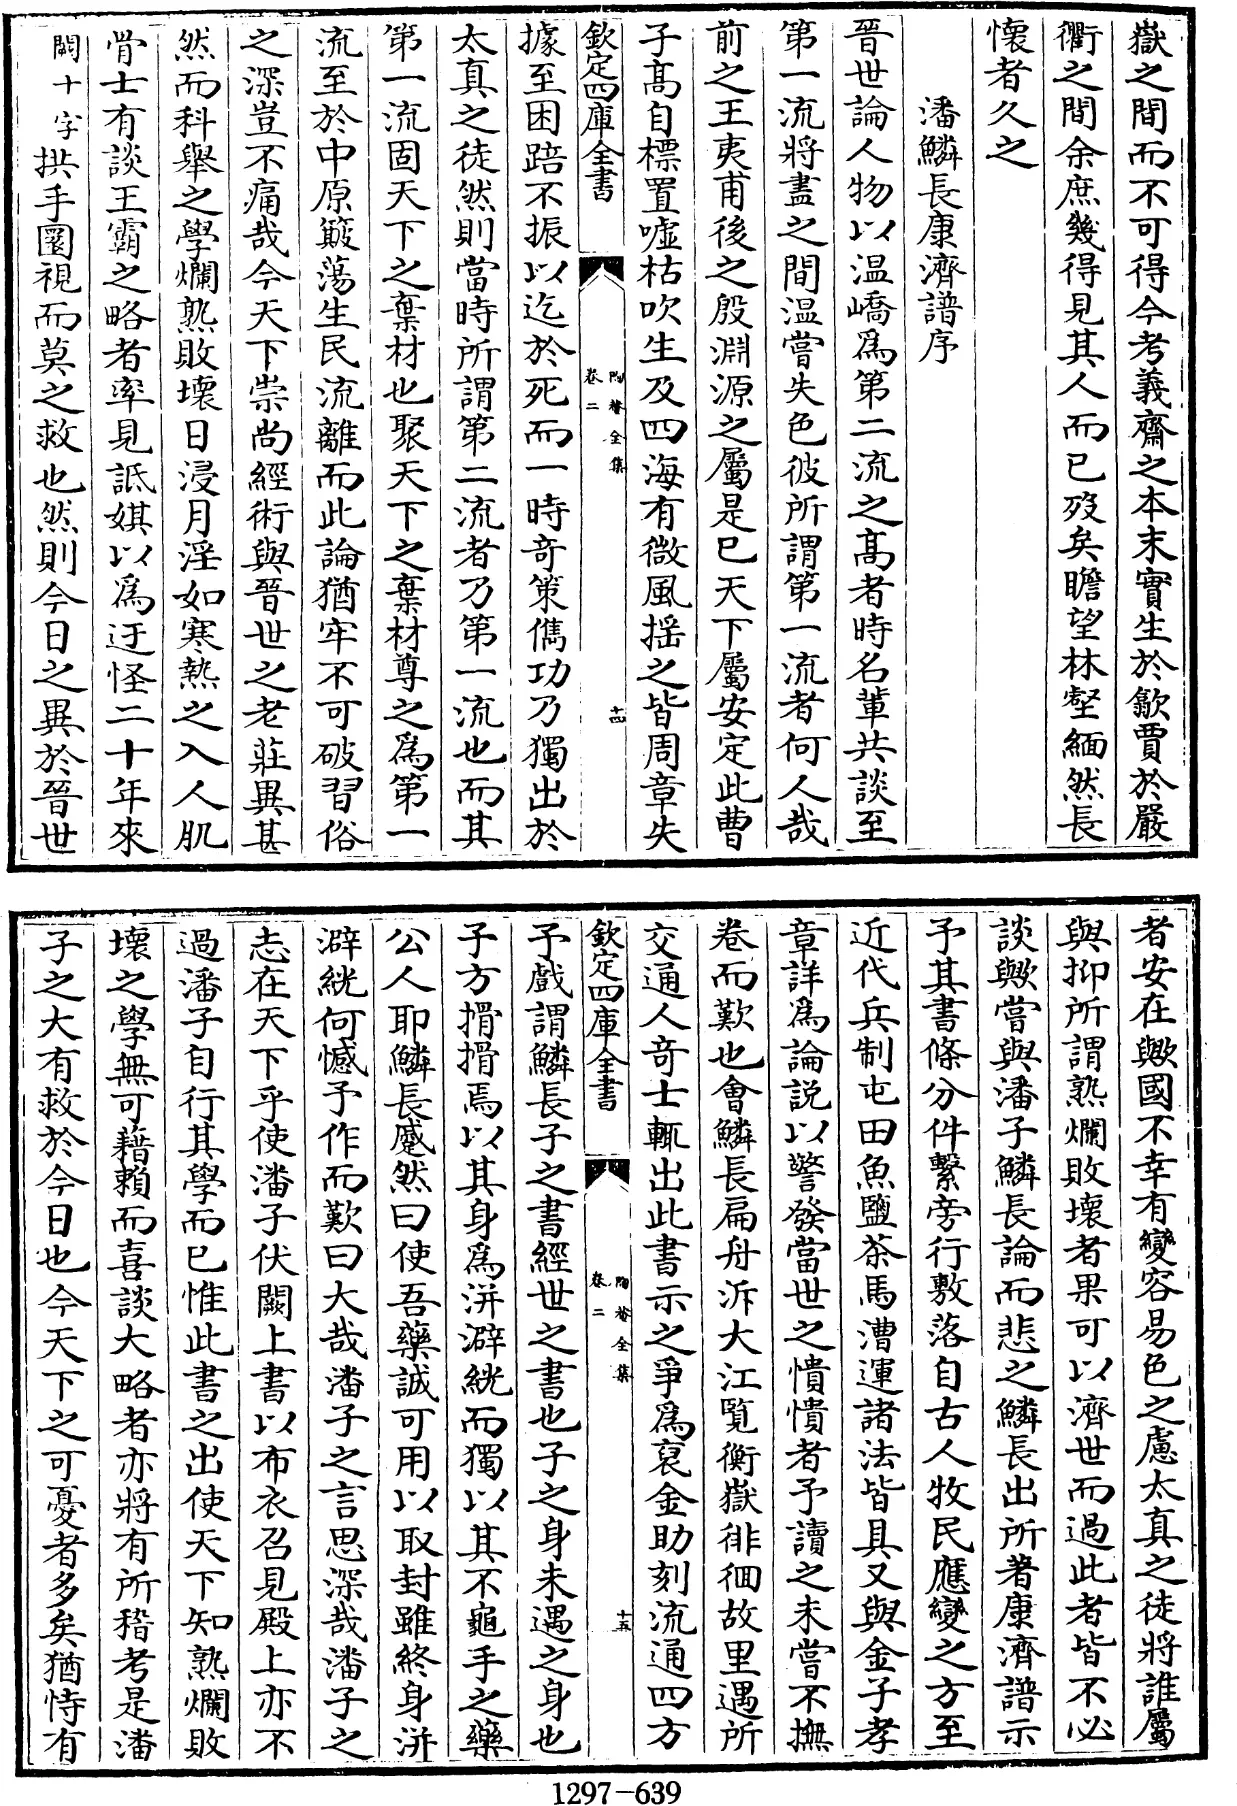 嶽之間而不可得今考義齋之本末實生於歙賈於嚴
衢之間余庶幾得見其人而已歿矣瞻望林壑緬然長
懷者久之
潘鱗長康濟譜序
晉世論人物以温嶠爲第二流之髙者時名輩共談至
第一流將盡之間温嘗失色彼所謂第一流者何人哉
前之王夷甫後之殷淵源之屬是已天下屬安定此曹
子髙自標置嘘枯吹生及四海有微風揺之皆周章失
欽定四庫全書
陶菴全集
卷二
十四
據至困踣不振以迄於死而一時竒策儁功乃獨出於
太真之徒然則當時所謂第二流者乃第一流也而其
第一流固天下之棄材也聚天下之棄材尊之爲第一
流至於中原簸蕩生民流離而此論猶牢不可破習俗
之深豈不痛哉今天下崇尚經術與晉世之老莊異甚
然而科舉之學爛熟敗壞日浸月淫如寒熱之入人肌
骨士有談王霸之略者率見詆娸以爲迂怪二十年來
闕十字拱手圜視而莫之救也然則今日之異於晉世
者安在歟國不幸有變容易色之慮太真之徒將誰屬
與抑所謂熟爛敗壞者果可以濟世而過此者皆不必
談歟嘗與潘子鱗長論而悲之鱗長出所著康濟譜示
予其書條分件繫旁行敷落自古人牧民應變之方至
近代兵制屯田魚鹽茶馬漕運諸法皆具又與金子孝
章詳爲論說以警發當世之憒憒者予讀之未嘗不撫
卷而歎也會鱗長扁舟泝大江覧衡嶽徘徊故里遇所
交通人竒士輒出此書示之爭爲裒金助刻流通四方
欽定四庫全書
陶菴全集
卷二
十五
予戲謂鱗長子之書經世之書也子之身未遇之身也
子方搰搰焉以其身爲洴澼絖而獨以其不龜手之藥
公人耶鱗長蹙然曰使吾藥誠可用以取封雖終身洴
澼絖何憾予作而歎曰大哉潘子之言思深哉潘子之
志在天下乎使潘子伏闕上書以布衣召見殿上亦不
過潘子自行其學而已惟此書之出使天下知熟爛敗
壞之學無可藉賴而喜談大略者亦將有所稽考是潘
子之大有救於今日也今天下之可憂者多矣猶恃有
1297-639